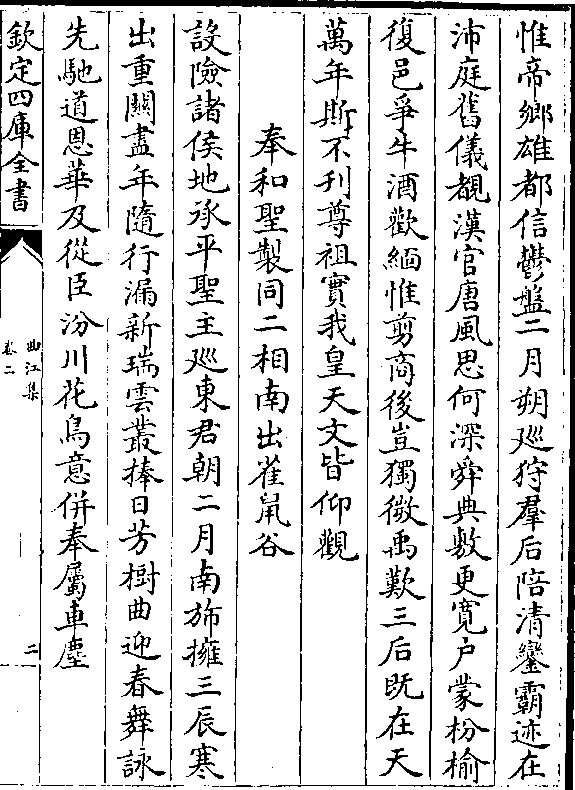 惟帝鄉雄都信鬱盤二月朔廵狩羣后陪清鑾霸迹在
沛庭舊儀覩漢官唐風思何深舜典敷更寛户蒙枌榆
復邑爭牛酒歡緬惟剪商後豈獨微禹歎三后既在天
萬年斯不刋尊祖實我皇天文皆仰觀
奉和聖製同二相南出雀䑕谷
設險諸侯地承平聖主廵東君朝二月南斾擁三辰寒
出重關盡年隨行漏新瑞雲叢捧日芳樹曲迎春舞詠
先馳道恩華及從臣汾川花鳥意併奉屬車塵
欽定四庫全書
曲江集
卷二
二